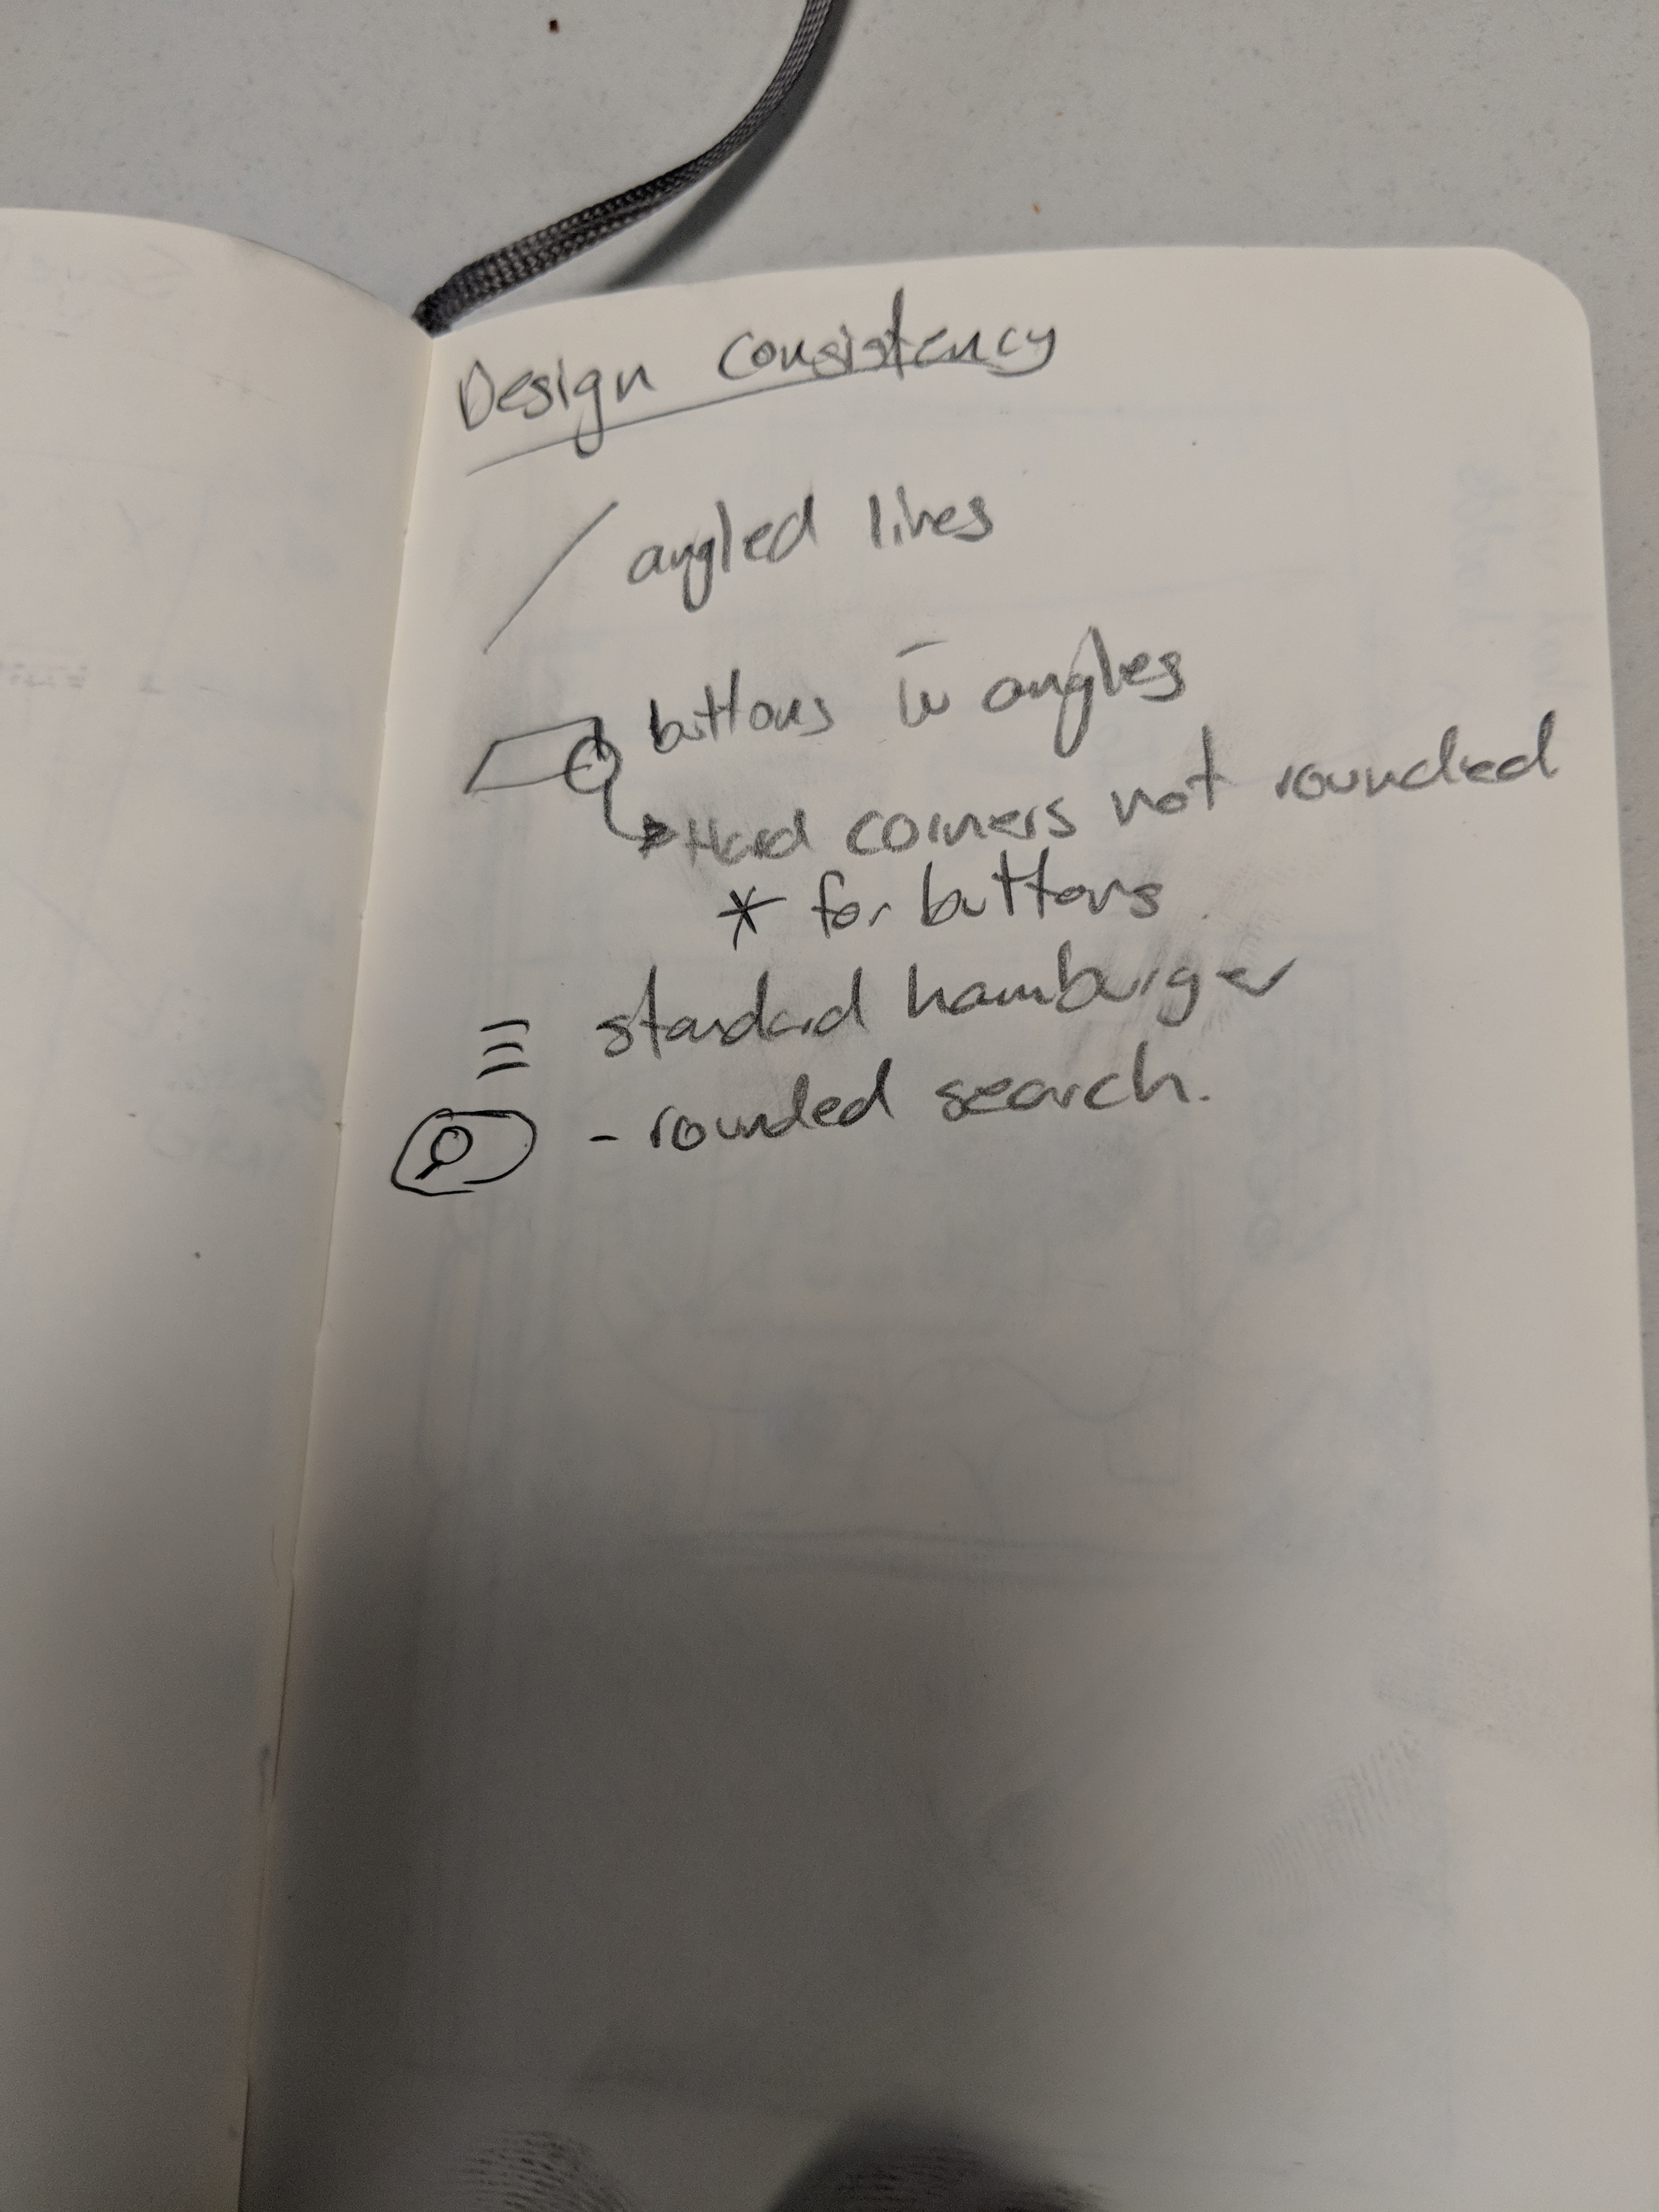 Design Consistency
angled lines
buttons w̅ angles
Hard corners not rounded
* for buttons
standard hamburger
- rounded search.